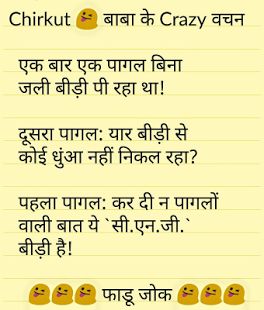 Chirkut 😜 बाबा के Crazy वचन
एक बार एक पागल बिना
जली बीड़ी पी रहा था!
दूसरा पागल: यार बीड़ी से
कोई धुंआ नहीं निकल रहा?
पहला पागल: कर दी न पागलों
वाली बात ये `सी.एन.जी.`
बीड़ी है!
😜😜😜 फाडू जोक 😜😜😜